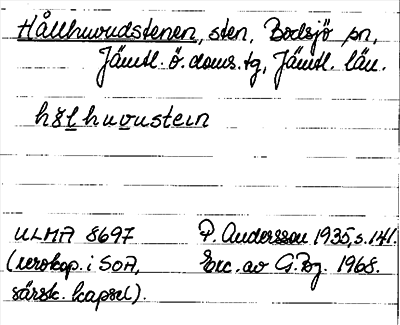 Hållhuvudstenen, sten, Bodsjö sn,
Jämtl. ö. doms. tg, Jämtl. län.
hålhuvustein
ULMA 8697 P. Andersson 1935, s. 141.
(xerokop. i SOA, Exc. av G. Bg. 1968.
särsk. kapsel).